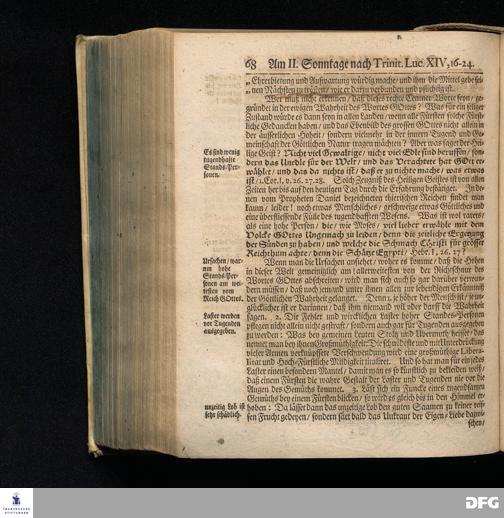 68 Am II. Sonntage nach Trinit. Luc. XIV, 16-24.
„ Ehrerbietung und Aufwartung würdig mache/ und ihm die Mittel gebe sei-
„ nen Nächsten zu trösten/ wie er darzu verbunden und pflichtig ist.
Wer muß nicht erkennen/ daß dieses rechte Lemmer Worte seyn/ ge-
gründet in der ewigen Wahrheit des Wortes GOttes? Was für ein seliger
Zustand würde es dann seyn in allen Landen/ wenn alle Fürsten solche Fürst-
liche Gedancken haben/ und das Ebenbild des grossen GOttes nicht allein in
der äusserlichen Hoheit/ sondern vielmehr in der innern Tugend und Ge-
meinschaft der Göttlichen Natur tragen möchten? Aber was saget der Hei-
lige Geist? Nicht viel Gewaltige/ nicht viel Edle sind beruffen/ son-
dern das Unedle für der Welt/ und das Verachtete hat GOtt er-
wählet/ und das da nichts ist/ daß er zu nichte mache/ was etwas
ist/ 1. Cor. I, v. 26. 27. 28. Solch Zeugniß des Heiligen Geistes ist von allen
Zeiten her bis auf den heutigen Tag durch die Erfahrung bestätiget. In de-
nen vom Propheten Daniel bezeichneten thierischen Reichen findet man
kaum/ leider! noch etwas Menschliches/ geschweige etwas Göttliches und
eine überfliessende Fülle des tugendhafften Wesens. Was ist wol rarers/
als eine hohe Person/ die/ wie Moses/ viel lieber erwehle mit dem
Volcke GOttes Ungemach zu leiden/ denn die zeitliche Ergezung
der Sünden zu haben/ und welche die Schmach Christi für grösser
Reichthum achte/ denn die Schätze Egypti/ Hebr. I, 26. 27?
Wenn man die Ursachen ansiehet/ woher es komme/ daß die Hohen
in dieser Welt gemeiniglich am allerweitesten von der Richtschnur des
Wortes GOttes abschreiten/ wird man sich auch so gar darüber verwun-
dern müssen/ daß noch jemand unter ihnen allen zur lebendigen Erkänntniß
der Göttlichen Wahrheit gelanget. Denn 1. je höher der Mensch ist/ je un-
glücklicher ist er darinnen/ daß ihm niemand wil oder darf die Wahrheit
sagen. 2. Die Fehler und wircklichen Laster hoher Standes-Personen
pflegen nicht allein nicht gestraft/ sondern auch gar für Tugenden ausgegeben
zu werden: Was bey gemeinen Leuten Stoltz und Ubermuth heisset/ das
nennet man bey ihnen Großmüthigkeit: Die schnödeste und mit Unterdrückung
vieler Armen verknüpffete Verschwendung wird eine großmüthige Libera-
lität und Hoch-Fürstliche Mildigkeit tituliret. Und so hat man für ein jedes
Laster einen besondern Mantel/ damit man es so künstlich zu bekleiden weiß/
daß einem Fürsten die wahre Gestalt der Laster und Tugenden nie vor die
Augen des Gemüths kommet. 3. Läst sich ein Funcke eines tugendsamen
Gemüths bey einem Fürsten blicken/ so wird es gleich bis in den Himmel er-
hoben: Da lässet dann das unzeitige Lob den guten Saamen zu keiner reif-
fen Frucht gedeyen/ sondern säet bald das Unkraut der Eigen-Liebe dazwi-
schen/
Es sind wenig
tugendhafte
Stands-Per-
sonen.
Ursachen/ war-
um hohe
Stands-Per-
sonen am we-
nigsten vom
Reich GOttes.
Laster werden
vor Tugenden
ausgegeben.
unzeitig Lob ist
sehr schädlich.
FRANCKESCHE
STIFTUNGEN
DFG